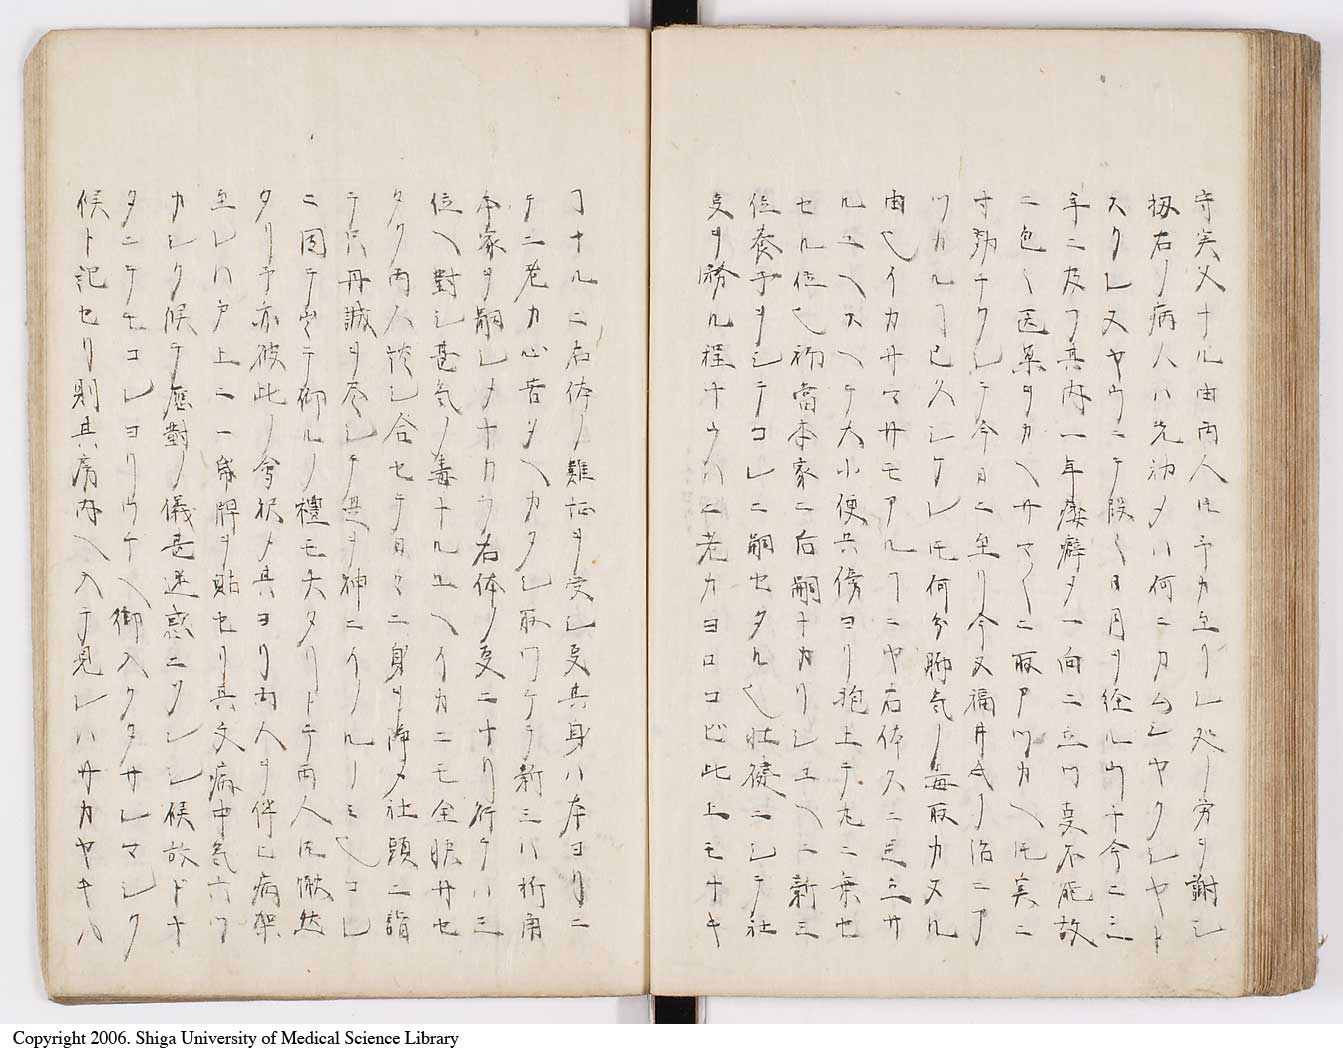 守実父ナル由両人ﾄﾓ予カ至リシ処ノ労ヲ謝シ
扨右ノ病人ハ先初メハ何ニカムシヤクシヤト
スクレヌヤウニテ段〱日月ヲ経ルウチ今ニ三
年ニ及フ其内一年痿癖メ一向ニ立ツ事不能故
ニ色〱医薬ヲカヘサマ〱ニ取アツカヘﾄﾓ実ニ
寸効ナクシテ今日ニ至リ今又福井氏ノ治ニア
ツカルヿ已久シケレﾄﾓ何分聊気ノ毒取カヌル
由也イカサマサモアルヿニヤ右体久ニ足立サ
ルユヘスヘテ大小便共傍ヨリ抱上テ丸ニ乗セ
セル位也初當本家ニ后嗣ナカリシユヘニ新三
位養子ヲシテコレニ嗣セタル也壮健ニシテ社
事ヲ務ル程ナラハ二老カヨロコビ此上モナキ
ヿナルニ右体ノ難証ヲ受シ事其身ハ本ヨリニ
テ二老カ心苦タヘカタシ取ワケテ新三ハ折角
本家ヲ嗣シメナカラ右体ノ事ニナリ行ケハ三
位ヘ對シ甚気ノ毒ナルユヘイカニモ全快サセ
タク両人談シ合セテ日々ニ身ヲ浄メ社頭ニ詣
テ只丹誠ヲ尽シテ是ヲ神ニイノルノミ也コレ
ニ因テ出テ御ルノ禮モ欠タリトテ両人ﾄﾓ愀然
タリ予亦彼此ノ會釈メ其ヨリ両人ヲ伴ヒ病架
至レハ戸上ニ一帋牌ヲ貼セリ其文病中気六ツ
カシク候テ應對ノ儀甚迷惑ニツシシ候故ドナ
タニテモコレヨリウチヘ御入クタサレマシク
候ト記セリ則其房内ヘ入テ見レハサカヤキハ
Copyright 2006. Shiga University of Medical Science Library